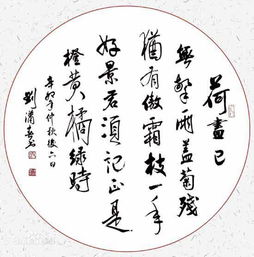 荷盡已
無擎雨蓋菊殘
猶有傲霜枝一年
好景君須記正是
橙黃橘綠時
辛卯年仲秋後六日
劉